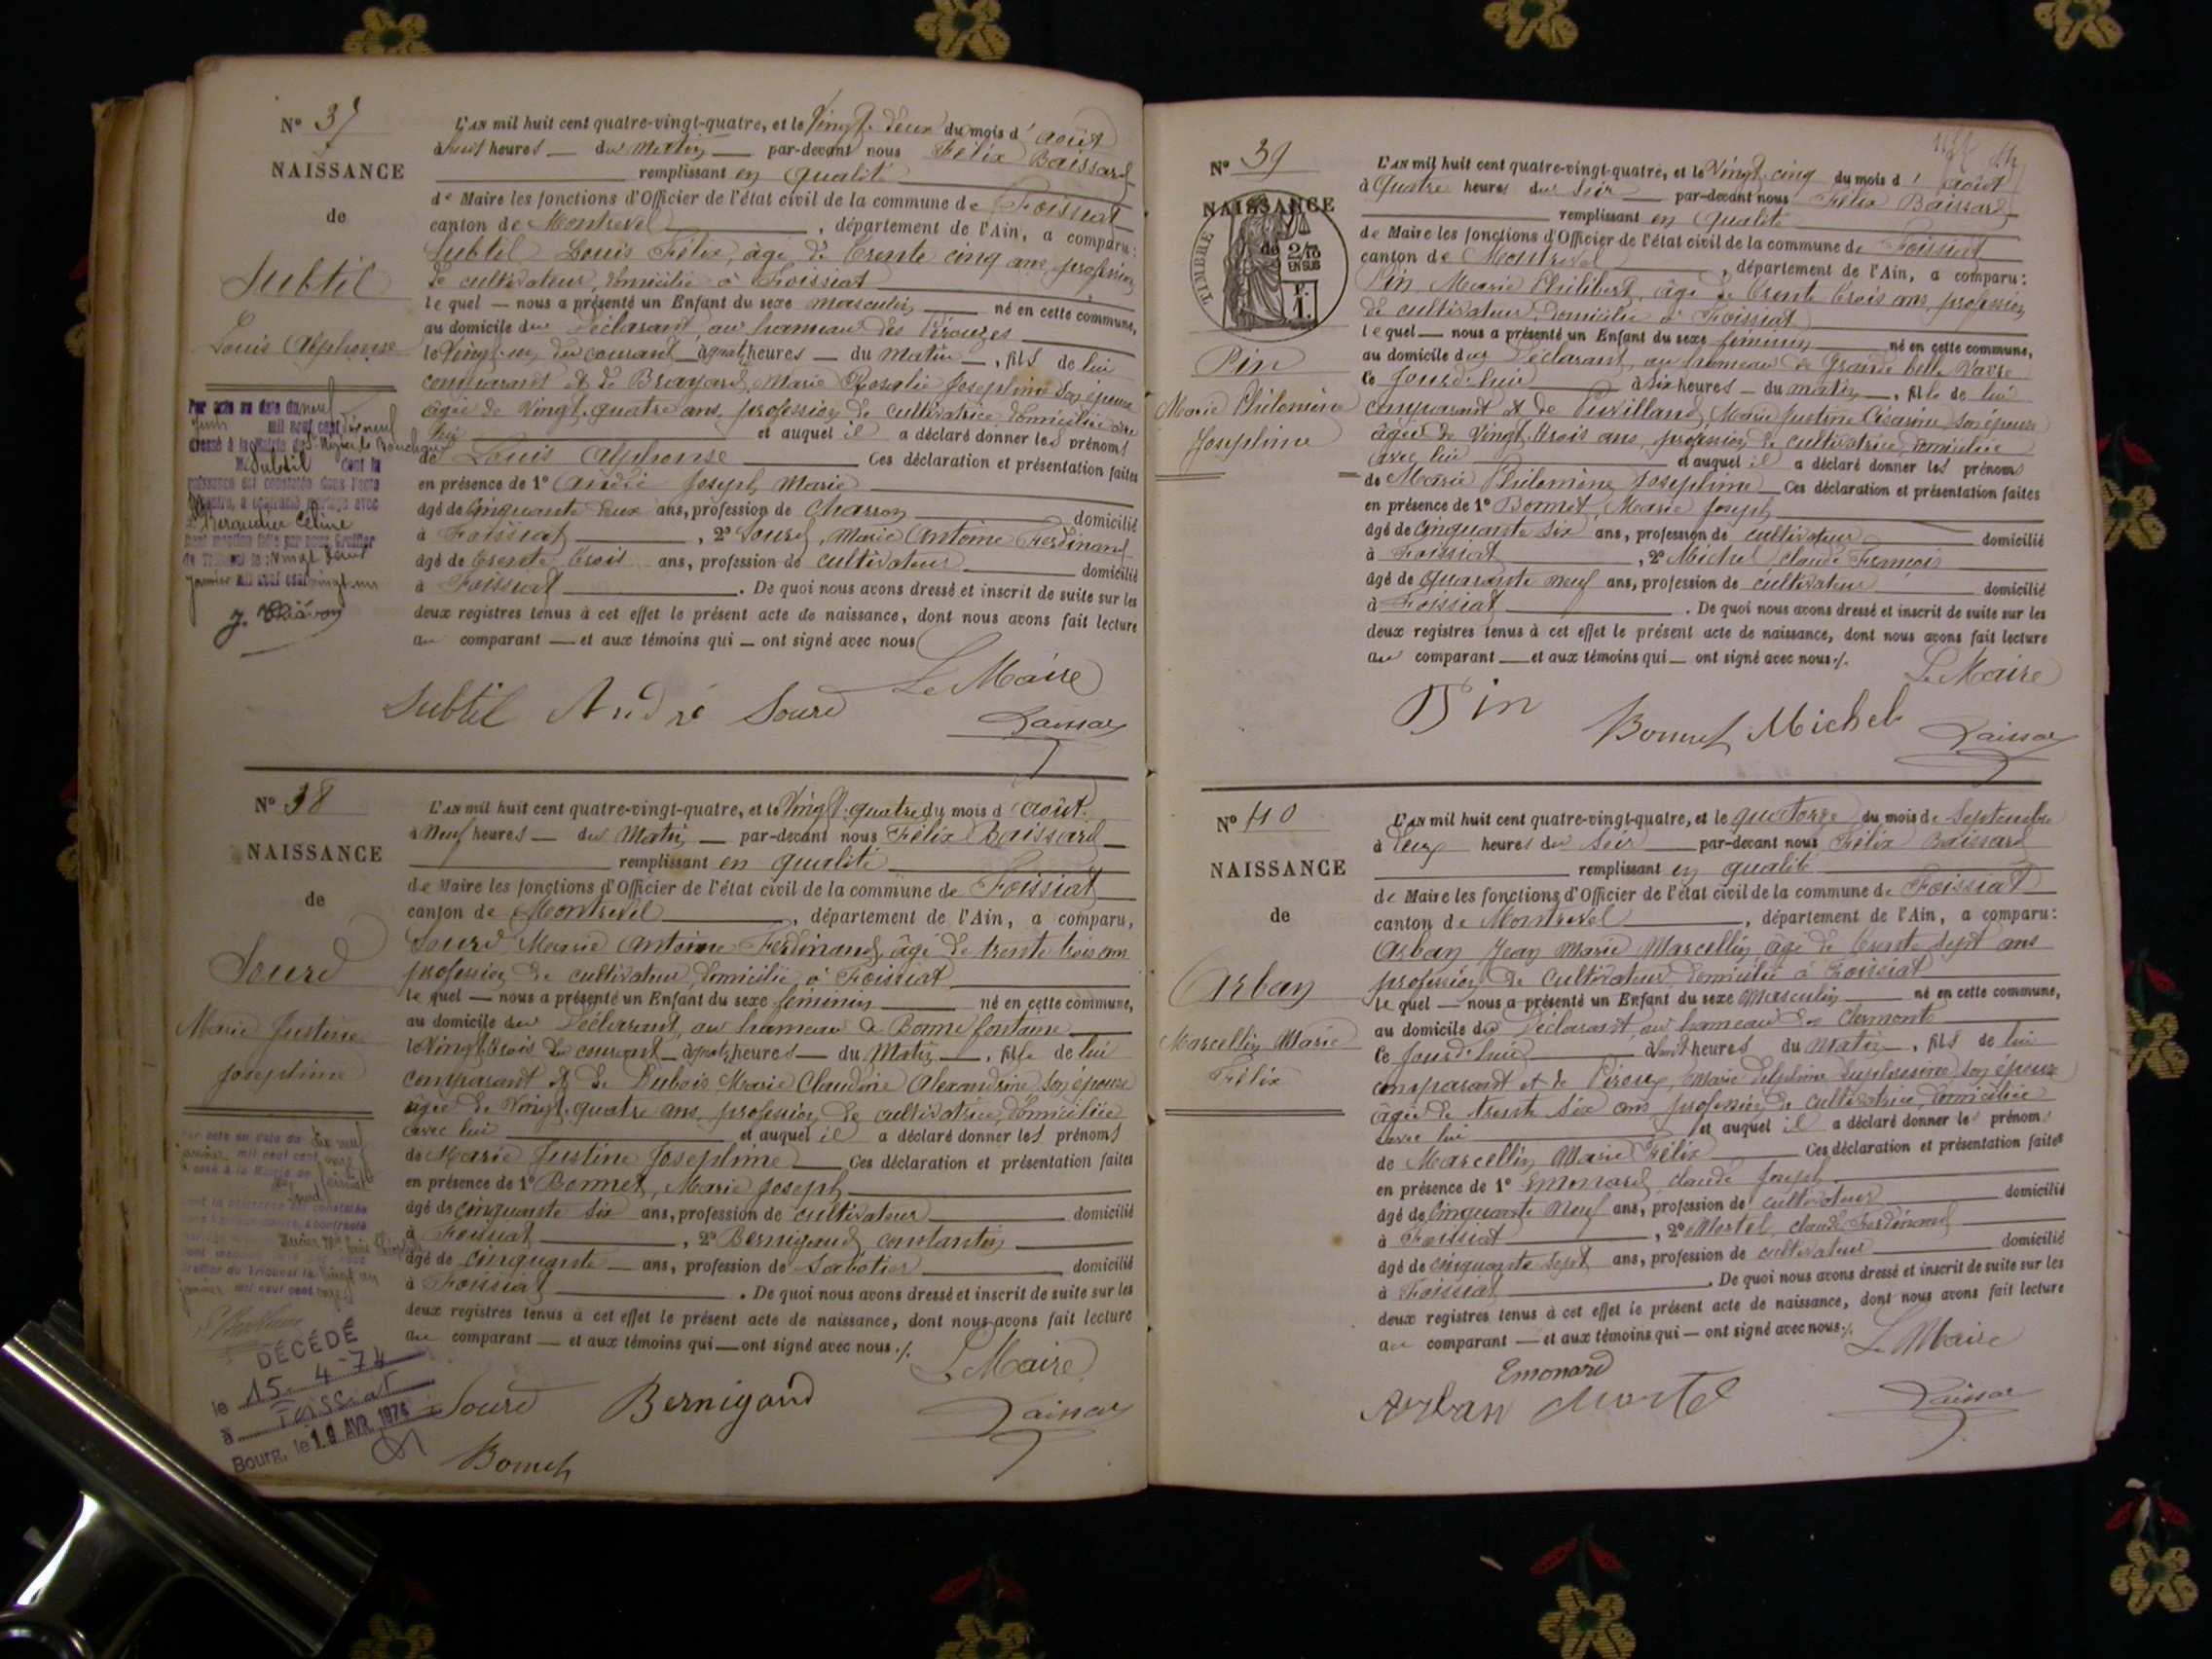 N° 37
NAISSANCE
de
Subtil
Louis Alphonse
Par acte en date du neuf
juin mil neuf cent dix neuf
dressé à la Mairie de St Nizier le Bouchoux
M Subtil dont la
naissance est constatée dans l'acte
ci-contre, a contracté mariage avec
Céline
dont mention faite par nous Greffier
du Tribunal le Vingt
janvier mil neuf cent vingt un
L'AN mil huit cent quatre-vingt-quatre, et le Vingt-deux du mois d' août
à huit heures — du Matin — par-devant nous Félix Baissard
remplissant en qualité
de Maire les fonctions d'Officier de l'état civil de la commune de Foissiat
canton de Montrevel, département de l'Ain, a comparu:
Subtil Louis Félix, âgé de trente cinq ans, profession
de cultivateur, domicilié à Foissiat
le quel — nous a présenté un Enfant du sexe masculin — né en cette commune,
au domicile du Déclarant, au hameau des
le Vingt-un du courant à heures — du Matin —, fils de lui
comparant et de Brayard, Marie Rosalie Joséphine son épouse
âgée de Vingt-quatre ans, profession de cultivatrice domiciliée avec
lui et auquel il a déclaré donner les prénoms
de Louis Alphonse Ces déclaration et présentation faites
en présence de 1° André Joseph Marie
âgé de Cinquante deux ans, profession de Charron domicilié
à Foissiat, 2° Sourd, Marie Antoine Ferdinand
âgé de trente trois ans, profession de cultivateur domicilié
à Foissiat. De quoi nous avons dressé et inscrit de suite sur les
deux registres tenus à cet effet le présent acte de naissance, dont nous avons fait lecture
au comparant — et aux témoins qui — ont signé avec nous
Le Maire
Subtil André Sourd Baissard
N° 38
NAISSANCE
de
Sourd
Marie Justine
Joséphine
Par acte en date du dix neuf
janvier mil neuf cent
dressé à la Mairie de Foissiat
Sourd
dont la naissance est constatée
dans l'acte ci-contre, a contracté
Greffier du Tribunal le Vingt un
janvier mil neuf cent
DÉCÉDÉ
le 15. 4 - 74
à Foissiat
Bourg, le 19 AVR. 1974
L'AN mil huit cent quatre-vingt-quatre, et le Vingt-quatre du mois d' août
à Neuf heures — du Matin — par-devant nous Félix Baissard
remplissant en qualité
de Maire les fonctions d'Officier de l'état civil de la commune de Foissiat
canton de Montrevel, département de l'Ain, a comparu,
Sourd Marie Antoine Ferdinand, âgé de trente trois ans
profession de cultivateur, domicilié à Foissiat
le quel — nous a présenté un Enfant du sexe féminin né en cette commune,
au domicile du Déclarant, au hameau de Bonne fontaine
le Vingt trois du courant à heures — du Matin —, fille de lui
comparant et de Dubois Marie Claudine Alexandrine son épouse
âgée de Vingt-quatre ans, profession de cultivatrice, domiciliée
avec lui et auquel il a déclaré donner les prénoms
de Marie Justine Joséphine — Ces déclaration et présentation faites
en présence de 1° Bonnet, Marie Joseph
âgé de cinquante six ans, profession de cultivateur domicilié
à Foissiat, 2° Bernigaud constantin
âgé de cinquante — ans, profession de Sabotier domicilié
à Foissiat. De quoi nous avons dressé et inscrit de suite sur les
deux registres tenus à cet effet le présent acte de naissance, dont nous avons fait lecture
au comparant — et aux témoins qui — ont signé avec nous ./.
Le Maire
Sourd Bernigaud Baissard
Bonnet
N° 39
NAISSANCE
de
TIMBRE
2/10
EN SUS
F.
1.
Pin
Marie Philomène
Joséphine
L'AN mil huit cent quatre-vingt-quatre, et le Vingt-cinq du mois d' août
à Quatre heures du Soir — par-devant nous Félix Baissard
remplissant en qualité
de Maire les fonctions d'Officier de l'état civil de la commune de Foissiat
canton de Montrevel, département de l'Ain, a comparu:
Pin Marie Philibert, âgé de trente trois ans, profession
de cultivateur, domicilié à Foissiat
le quel — nous a présenté un Enfant du sexe féminin né en cette commune,
au domicile du Déclarant, au hameau de Grande belle Vavre
ce Jourd'hui à six heures — du matin —, fille de lui
comparant et de Puvilland, Marie Justine Césarine son épouse
âgée de Vingt-trois ans, profession de cultivatrice, domiciliée
avec lui et auquel il a déclaré donner les prénoms
de Marie Philomène Joséphine — Ces déclaration et présentation faites
en présence de 1° Bonnet, Marie Joseph
âgé de Cinquante six ans, profession de cultivateur domicilié
à Foissiat, 2° Michel claude François
âgé de Quarante neuf ans, profession de cultivateur domicilié
à Foissiat. De quoi nous avons dressé et inscrit de suite sur les
deux registres tenus à cet effet le présent acte de naissance, dont nous avons fait lecture
au comparant — et aux témoins qui — ont signé avec nous ./.
Le Maire
Pin Bonnet Michel Baissard
N° 40
NAISSANCE
de
Arban
Marcellin Marie
Félix
L'AN mil huit cent quatre-vingt-quatre, et le quatorze du mois de Septembre
à Deux heures du Soir — par-devant nous Félix Baissard
remplissant en qualité
de Maire les fonctions d'Officier de l'état civil de la commune de Foissiat
canton de Montrevel, département de l'Ain, a comparu:
Arban Jean Marie Marcellin âgé de trente sept ans
profession de Cultivateur domicilié à Foissiat
le quel — nous a présenté un Enfant du sexe Masculin né en cette commune,
au domicile du Déclarant au hameau de Clermont
ce Jourd'hui à huit heures du matin —, fils de lui
comparant et de Piroux, Marie Delphine son épouse
âgée de trente six ans profession de cultivatrice, domiciliée
avec lui et auquel il a déclaré donner les prénoms
de Marcellin Marie Félix Ces déclaration et présentation faites
en présence de 1° Emonard claude Joseph
âgé de Cinquante Neuf ans, profession de cultivateur domicilié
à Foissiat, 2° Mortel, claude Ferdinand
âgé de cinquante sept ans, profession de cultivateur domicilié
à Foissiat. De quoi nous avons dressé et inscrit de suite sur les
deux registres tenus à cet effet le présent acte de naissance, dont nous avons fait lecture
au comparant — et aux témoins qui — ont signé avec nous ./.
Le Maire
Emonard
Arban Mortel Baissard